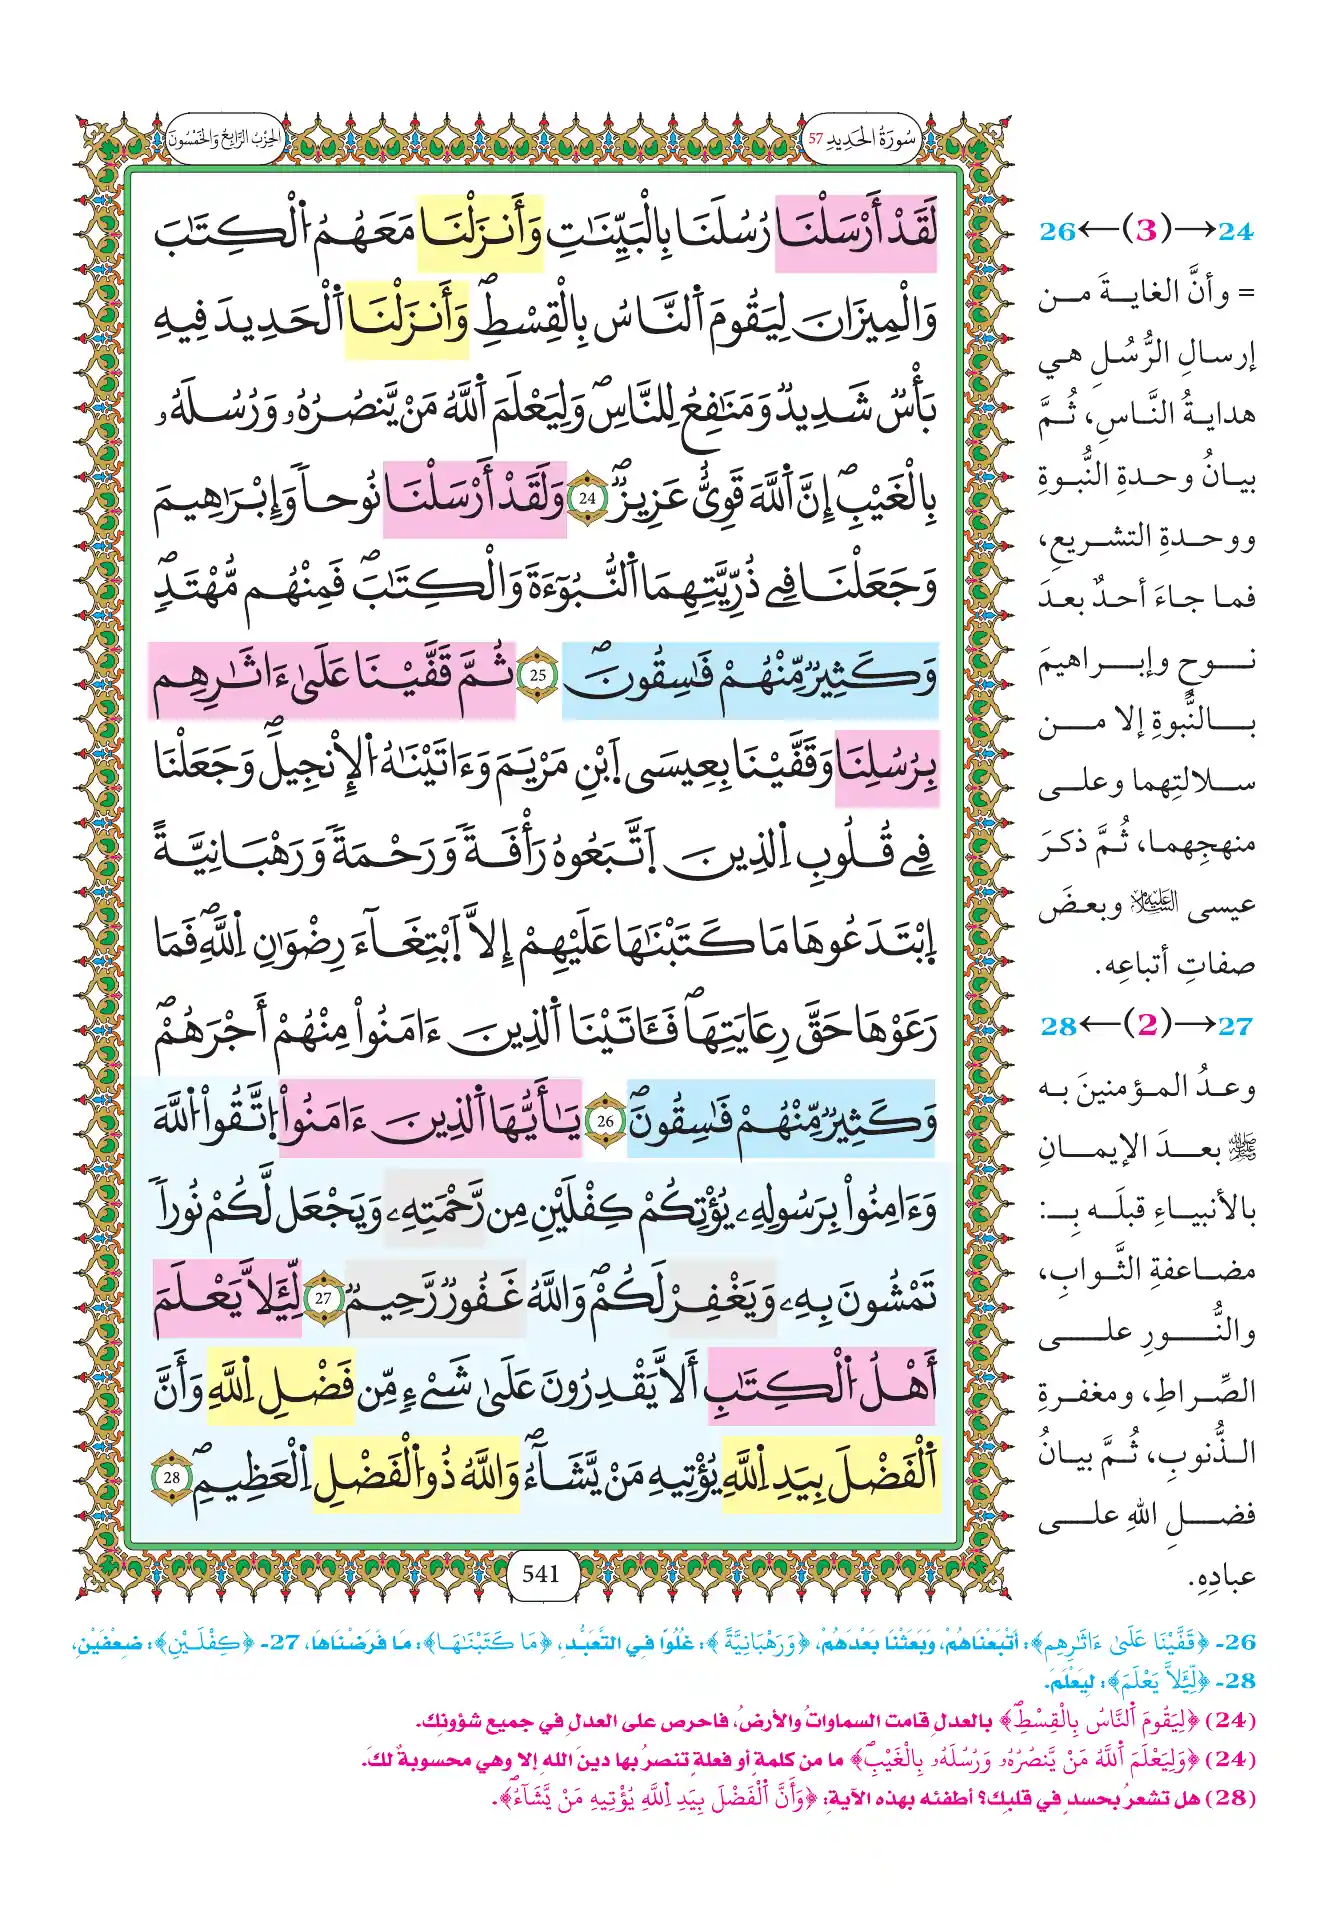 سُورَةُ الحَدِيدِ 57
الحِزْبُ الرَّابِعُ وَالخَمْسُونَ
لَقَدْ أَرْسَلْنَا رُسُلَنَا بِالْبَيِّنَٰتِ وَأَنزَلْنَا مَعَهُمُ اُ۬لْكِتَٰبَ
وَالْمِيزَانَ لِيَقُومَ اَ۬لنَّاسُ بِالْقِسْطِۖ وَأَنزَلْنَا اَ۬لْحَدِيدَ فِيهِ
بَأْسٞ شَدِيدٞ وَمَنَٰفِعُ لِلنَّاسِۖ وَلِيَعْلَمَ اَ۬للَّهُ مَنْ يَّنصُرُهُۥ وَرُسُلَهُۥ
بِالْغَيْبِۖ إِنَّ اَ۬للَّهَ قَوِيٌّ عَزِيزٞۖ 24 وَلَقَدْ أَرْسَلْنَا نُوحاٗ وَإِبْرَٰهِيمَ
وَجَعَلْنَا فِے ذُرِّيَّتِهِمَا اَ۬لنُّبُوٓءَةَ وَالْكِتَٰبَۖ فَمِنْهُم مُّهْتَدٖۖ
وَكَثِيرٞ مِّنْهُمْ فَٰسِقُونَۖ 25 ثُمَّ قَفَّيْنَا عَلَىٰ ءَاثَٰرِهِم
بِرُسُلِنَا وَقَفَّيْنَا بِعِيسَى اَ۪بْنِ مَرْيَمَ وَءَاتَيْنَٰهُ اُ۬لْإِنجِيلَۖ وَجَعَلْنَا
فِے قُلُوبِ اِ۬لذِينَ اَ۪تَّبَعُوهُ رَأْفَةٗ وَرَحْمَةٗ وَرَهْبَانِيَّةً
اِ۪بْتَدَعُوهَا مَا كَتَبْنَٰهَا عَلَيْهِمْ إِلَّا اَ۪بْتِغَآءَ رِضْوَٰنِ اِ۬للَّهِۖ فَمَا
رَعَوْهَا حَقَّ رِعَايَتِهَاۖ فَـَٔاتَيْنَا اَ۬لذِينَ ءَامَنُواْ مِنْهُمْ أَجْرَهُمْۖ
وَكَثِيرٞ مِّنْهُمْ فَٰسِقُونَۖ 26 يَٰأَيُّهَا اَ۬لذِينَ ءَامَنُواْ اُ۪تَّقُواْ اُ۬للَّهَ
وَءَامِنُواْ بِرَسُولِهِۦ يُؤْتِكُمْ كِفْلَيْنِ مِن رَّحْمَتِهِۦ وَيَجْعَل لَّكُمْ نُوراٗ
تَمْشُونَ بِهِۦ وَيَغْفِرْ لَكُمْۖ وَاللَّهُ غَفُورٞ رَّحِيمٞ 27 لِّئَلَّا يَعْلَمَ
أَهْلُ اُ۬لْكِتَٰبِ أَلَّا يَقْدِرُونَ عَلَىٰ شَےْءٖ مِّن فَضْلِ اِ۬للَّهِ وَأَنَّ
اَ۬لْفَضْلَ بِيَدِ اِ۬للَّهِ يُؤْتِيهِ مَنْ يَّشَآءُۖ وَاللَّهُ ذُو اُ۬لْفَضْلِ اِ۬لْعَظِيمِۖ 28
541
24→(3)←26
= وأنَّ الغايةَ من
إرسالِ الرُّسُلِ هي
هدايةُ النَّاسِ، ثُمَّ
بيانُ وحدةِ النُّبوةِ
ووحدةِ التشريعِ،
فما جاءَ أحدٌ بعدَ
نوحٍ وإبراهيمَ
بالنُّبوةِ إلا من
سلالتِهما وعلى
منهجِهما، ثُمَّ ذكرَ
عيسى عليه السلام وبعضَ
صفاتِ أتباعِه.
27→(2)←28
وعدُ المؤمنينَ به
ﷺ بعدَ الإيمانِ
بالأنبياءِ قبلَه بِـ:
مضاعفةِ الثَّوابِ،
والنُّورِ على
الصِّراطِ، ومغفرةِ
الذُّنوبِ، ثُمَّ بيانُ
فضلِ اللهِ على
عبادِهِ.
26- ﴿قَفَّيْنَا عَلَىٰ ءَاثَٰرِهِم﴾: أَتْبَعْنَاهُمْ، وَبَعَثْنَا بَعْدَهُمْ، ﴿وَرَهْبَانِيَّةً﴾: غُلُوًّا فِي التَّعَبُّدِ، ﴿مَا كَتَبْنَٰهَا﴾: مَا فَرَضْنَاهَا، 27- ﴿كِفْلَيْنِ﴾: ضِعْفَيْنِ،
28- ﴿لِّئَلَّا يَعْلَمَ﴾: لِيَعْلَمَ.
(24) ﴿لِيَقُومَ اَ۬لنَّاسُ بِالْقِسْطِۖ﴾ بالعدلِ قامت السماواتُ والأرضُ، فاحرص على العدلِ في جميع شؤونِك.
(24) ﴿وَلِيَعْلَمَ اَ۬للَّهُ مَنْ يَّنصُرُهُۥ وَرُسُلَهُۥ بِالْغَيْبِۖ﴾ ما من كلمةٍ أو فعلةٍ تنصرُ بها دينَ الله إلا وهي محسوبةٌ لكَ.
(28) هل تشعرُ بحسدٍ في قلبِك؟ أطفئه بهذه الآيةِ: ﴿وَأَنَّ اَ۬لْفَضْلَ بِيَدِ اِ۬للَّهِ يُؤْتِيهِ مَنْ يَّشَآءُۖ﴾.